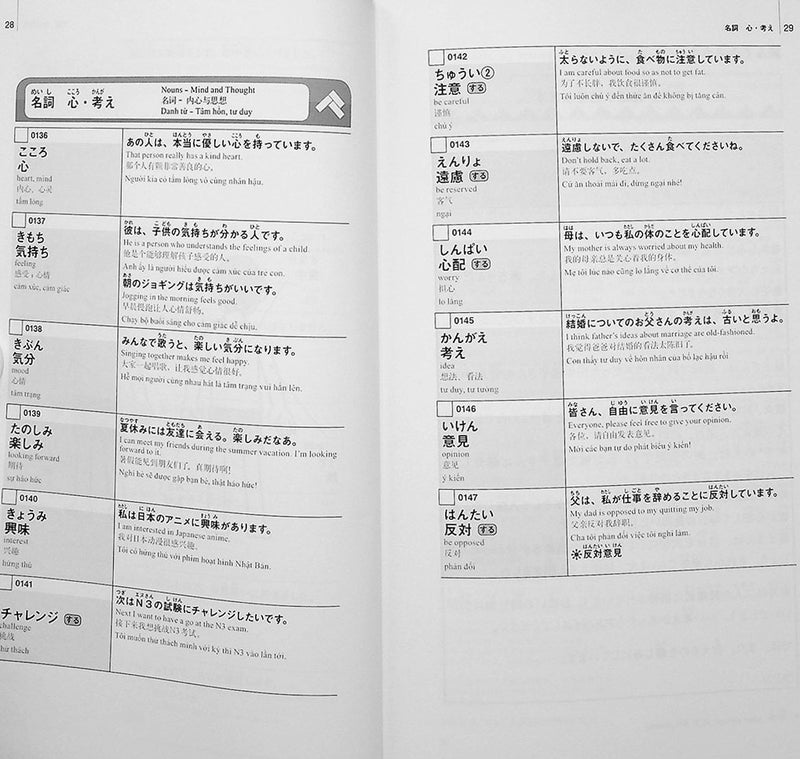 28
名詞 心・考え
めい し こころ かんが
Nouns - Mind and Thought
名词 - 内心与思想
Danh từ - Tâm hồn, tư duy
0136
こころ
心
heart, mind
内心、心灵
tấm lòng
あの人は、本当に優しい心を持っています。
That person really has a kind heart.
那个人有颗非常善良的心。
Người kia có tấm lòng vô cùng nhân hậu.
0137
きもち
気持ち
feeling
感受；心情
cảm xúc, cảm giác
彼は、子供の気持ちが分かる人です。
He is a person who understands the feelings of a child.
他是个能够理解孩子感受的人。
Anh ấy là người hiểu được cảm xúc của trẻ con.
朝のジョギングは気持ちがいいです。
Jogging in the morning feels good.
早晨慢跑让人心情舒畅。
Chạy bộ buổi sáng cho cảm giác dễ chịu.
0138
きぶん
気分
mood
心情
tâm trạng
みんなで歌うと、楽しい気分になります。
Singing together makes me feel happy.
大家一起唱歌，让我感觉心情很好。
Hễ mọi người cùng nhau hát là tâm trạng vui hẳn lên.
0139
たのしみ
楽しみ
looking forward
期待
sự háo hức
夏休みには友達に会える。楽しみだなあ。
I can meet my friends during the summer vacation. I'm looking
forward to it.
暑假能见到朋友们了，真期待啊!
Nghỉ hè sẽ được gặp bạn bè, thật háo hức!
0140
きょうみ
興味
interest
兴趣
hứng thú
私は日本のアニメに興味があります。
I am interested in Japanese anime.
我对日本动漫很感兴趣。
Tôi có hứng thú với phim hoạt hình Nhật Bản.
0141
チャレンジ する
challenge
挑战
thử thách
次はN3の試験にチャレンジしたいです。
Next I want to have a go at the N3 exam.
接下来我想挑战N3考试。
Tôi muốn thử thách mình với kỳ thi N3 vào lần tới.
名詞 心・考え 29
0142
ちゅうい②
注意 する
be careful
谨慎
chú ý
太らないように、食べ物に注意しています。
I am careful about food so as not to get fat.
为了不长胖，我饮食很谨慎。
Tôi luôn chú ý đến thức ăn để không bị tăng cân.
0143
えんりょ
遠慮 する
be reserved
客气
ngại
遠慮しないで、たくさん食べてくださいね。
Don't hold back, eat a lot.
请不要客气，多吃点。
Cứ ăn thoải mái đi, đừng ngại nhé!
0144
しんぱい
心配 する
worry
担心
lo lắng
母は、いつも私の体のことを心配しています。
My mother is always worried about my health.
我的母亲总是关心着我的身体。
Mẹ tôi lúc nào cũng lo lắng về cơ thể của tôi.
0145
かんがえ
考え
idea
想法、看法
tư duy, tư tưởng
結婚についてのお父さんの考えは、古いと思うよ。
I think father's ideas about marriage are old-fashioned.
我觉得爸爸对结婚的看法太陈旧了。
Con thấy tư duy về hôn nhân của bố lạc hậu rồi
0146
いけん
意見
opinion
意见
ý kiến
皆さん、自由に意見を言ってください。
Everyone, please feel free to give your opinion.
各位，请自由发表意见。
Mời các bạn tự do phát biểu ý kiến!
0147
はんたい
反対 する
be opposed
反对
phản đối
父は、私が仕事を辞めることに反対しています。
My dad is opposed to my quitting my job.
父亲反对我辞职。
Cha tôi phản đối việc tôi nghỉ làm.
反対意見